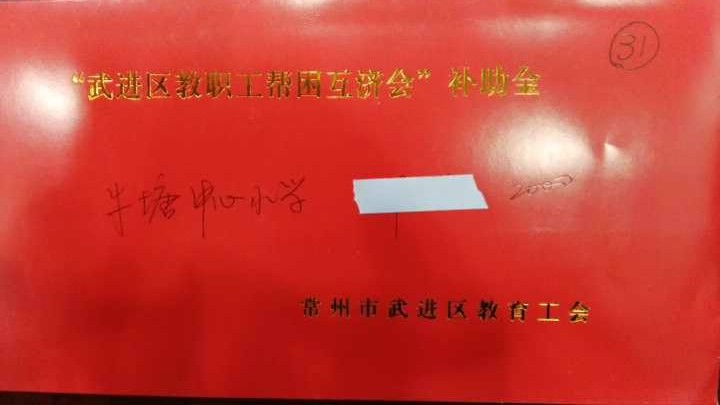 31
“武进区教职工帮困互济会”补助金
牛塘中心小学 2000
常州市武进区教育工会